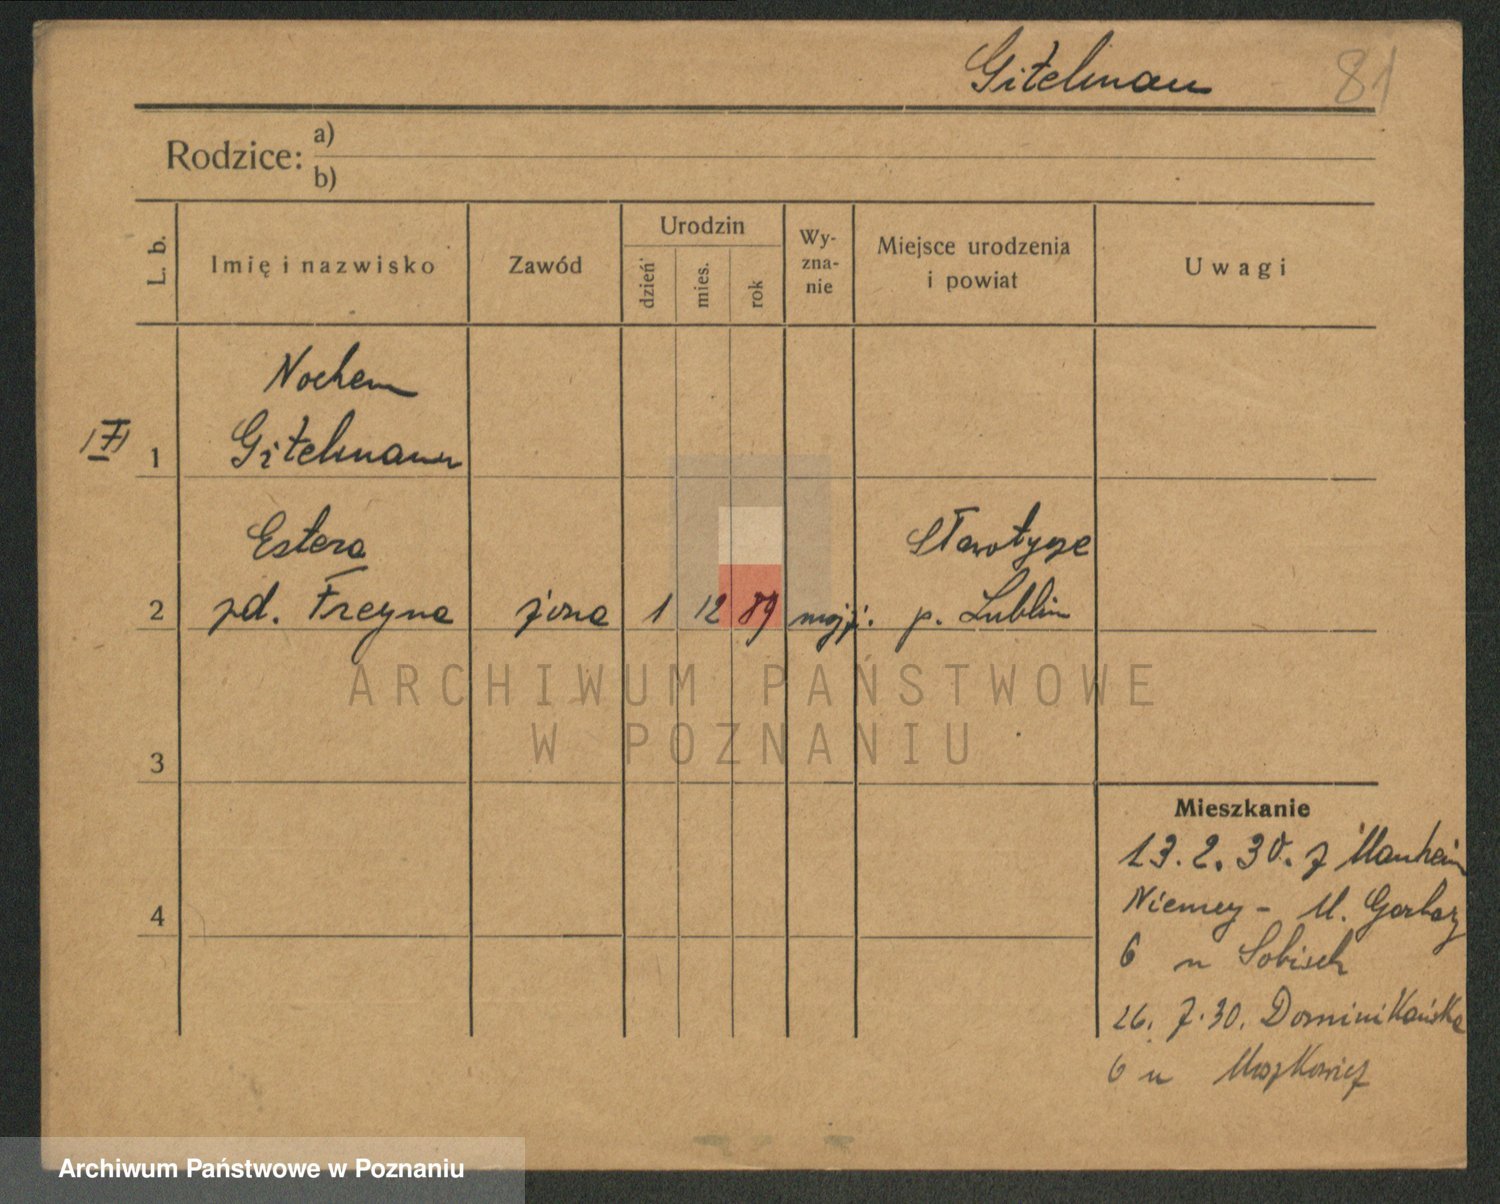 Gitelman 81
Rodzice: a)
b)
L. b. Imię i nazwisko Zawód Urodzin dzień mies. rok Wy-zna-nie Miejsce urodzenia i powiat Uwagi
Nochem
1 Gitelmann
Estera Sławatycze
2 zd. Freyna żona 1 12 89 mojż. p. Lublin
ARCHIWUM PAŃSTWOWE
W POZNANIU
3
Mieszkanie
13.2.30. z Manheim
4 Niemcy - Ul. Garbary
6 u Sobisch
26. 7.30. Dominikańska
6 u Moszkowicz
Archiwum Państwowe w Poznaniu